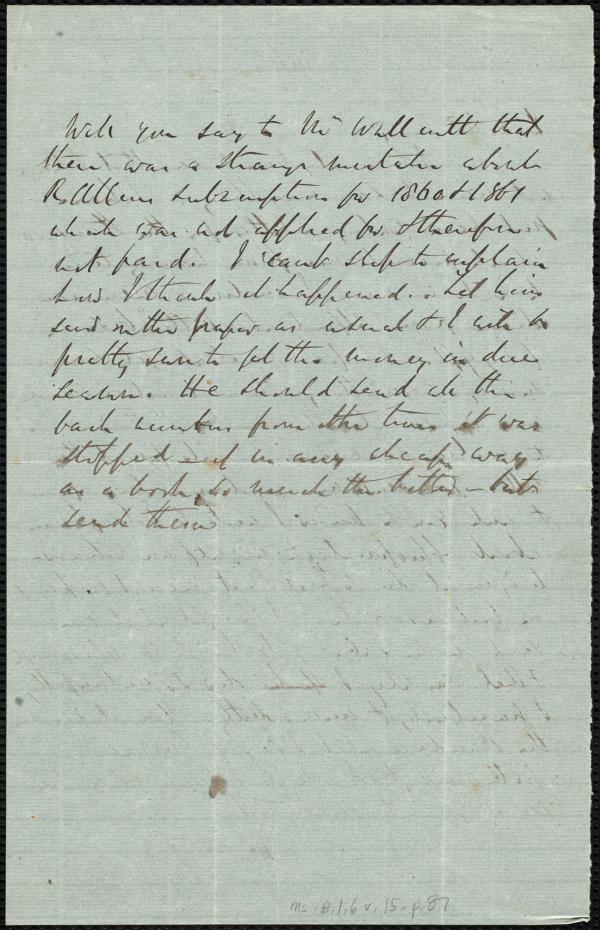 Will you say to Mr Wallcutt that
there was a strange mistake about
R. Allens subscription for 1860 & 1861
which was not applied for & therefore
not paid. I cant stop to explain
how I think it happened. Let him
send on the paper as usual & I will be
pretty sure to get the money in due
season. He should send all the
back numbers from the time it was
stopped – if in any cheap way
as a book, so much the better – but
send them
Ms. B.1.6 v. 15. p. 87